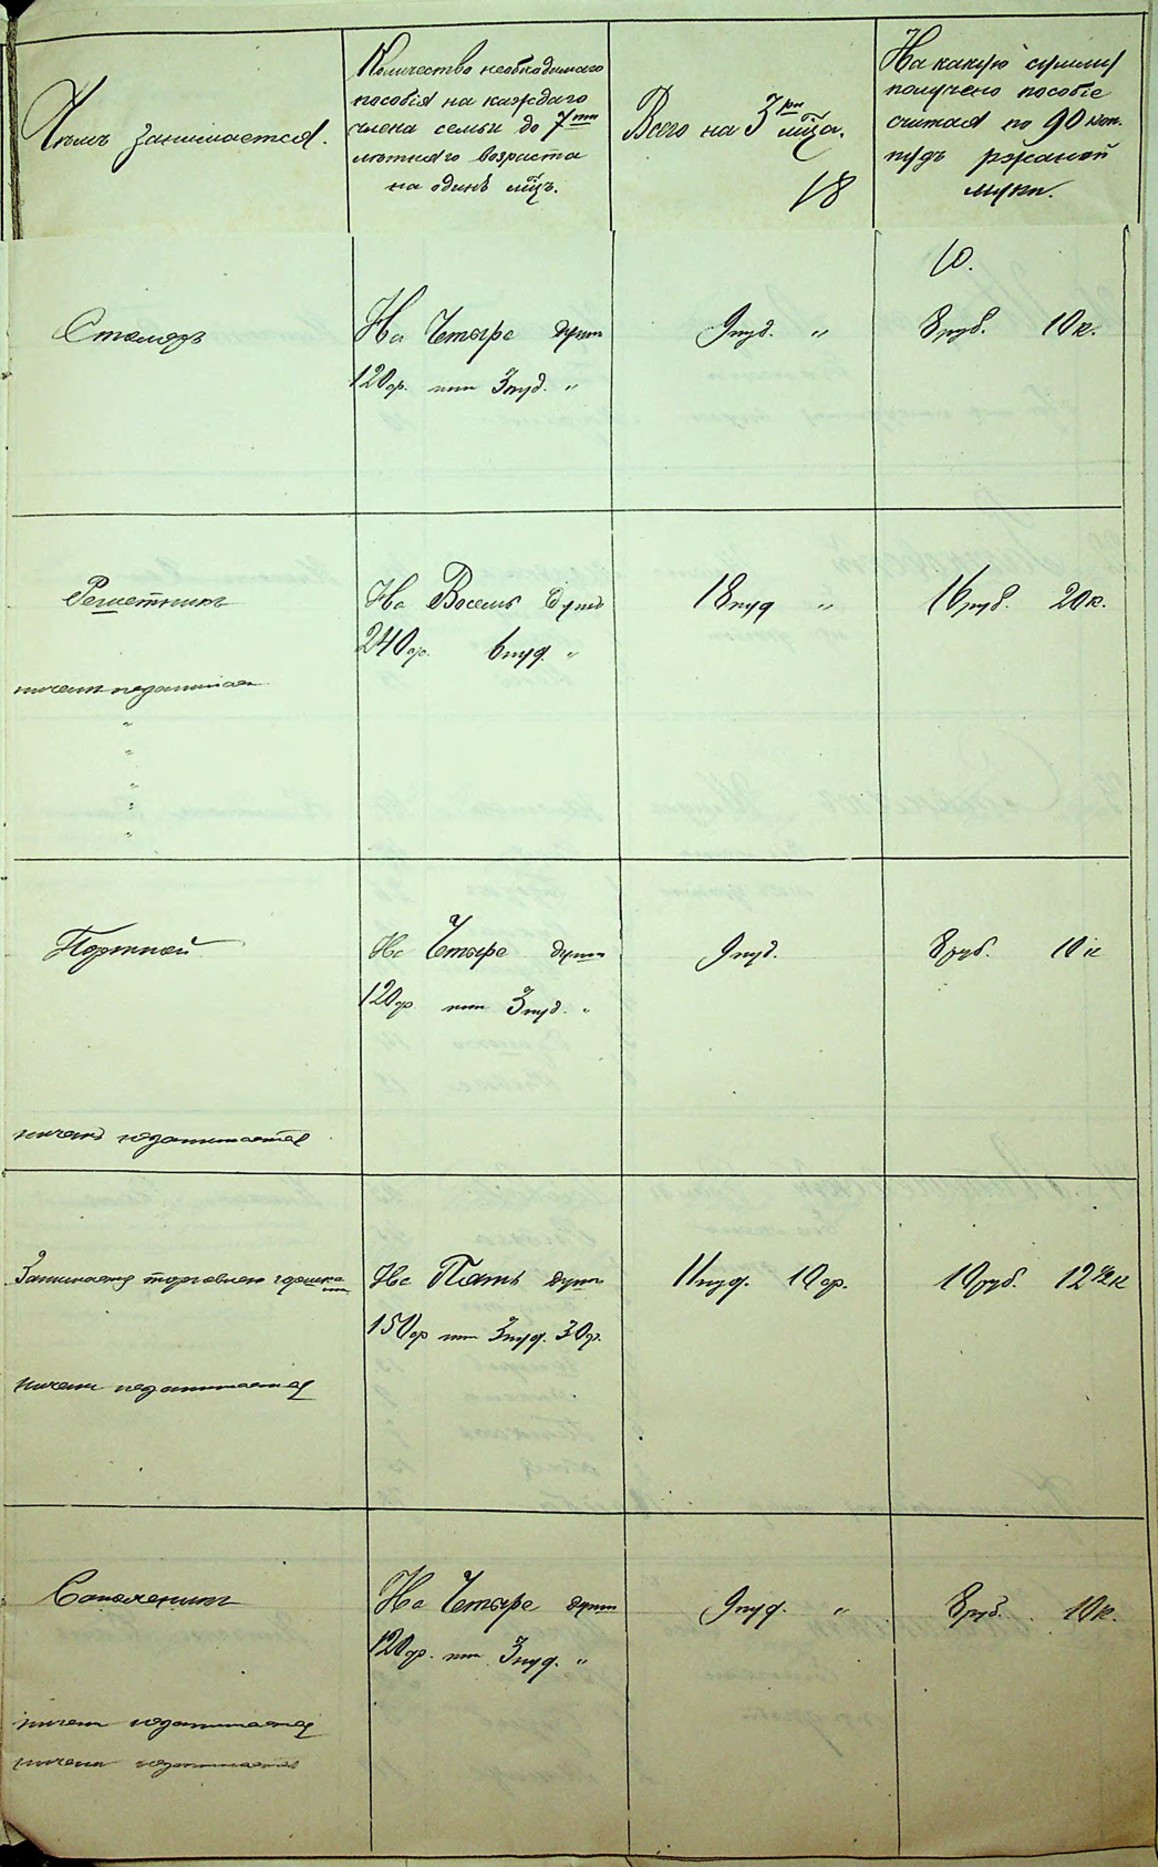 Чѣмъ занимается.
Количество необходимаго
пособія на каждаго
члена семьи до 7ми
лѣтняго возраста
на одинъ мѣц.
Всего на 3 ри мѣца.
18
На какую сумму
получено пособіе
считая по 90 коп.
пудъ ржаной
муки.
10.
Столяръ
На Четыре души
120 ф. или 3 пуд. "
9 пуд. "
8 руб. 10 к.
Решетникъ
На Восемь душъ
240 ф. 6 пуд. "
18 пуд "
16 руб. 20 к.
ничемъ незанимает
"
"
"
"
"
Портной
На Четыре души
120 ф или 3 пуд. "
9 пуд.
8 руб. 10 к
ничемъ незанимается
Занимаетъ торговлею горшка
ми
На Пять душъ
150 ф или 3 пуд. 30 ф.
11 пуд. 10 ф.
10 руб. 12 1/2 к
ничемъ незанимается
Сапожникъ
На Четыре души
120 ф. или 3 пуд. "
9 пуд. "
8 руб. 10 к.
ничемъ незанимается
ничемъ незанимается